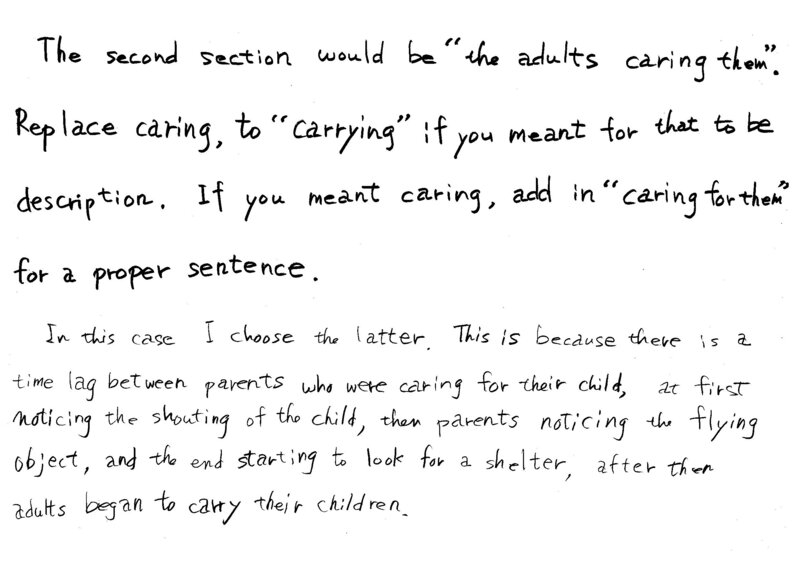 The second section would be "the adults caring them".
Replace caring, to "carrying" if you meant for that to be
description. If you meant caring, add in "caring for them"
for a proper sentence.
In this case I choose the latter. This is because there is a
time lag between parents who were caring for their child, at first
noticing the shouting of the child, then parents noticing the flying
object, and the end starting to look for a shelter, after then
adults began to carry their children.